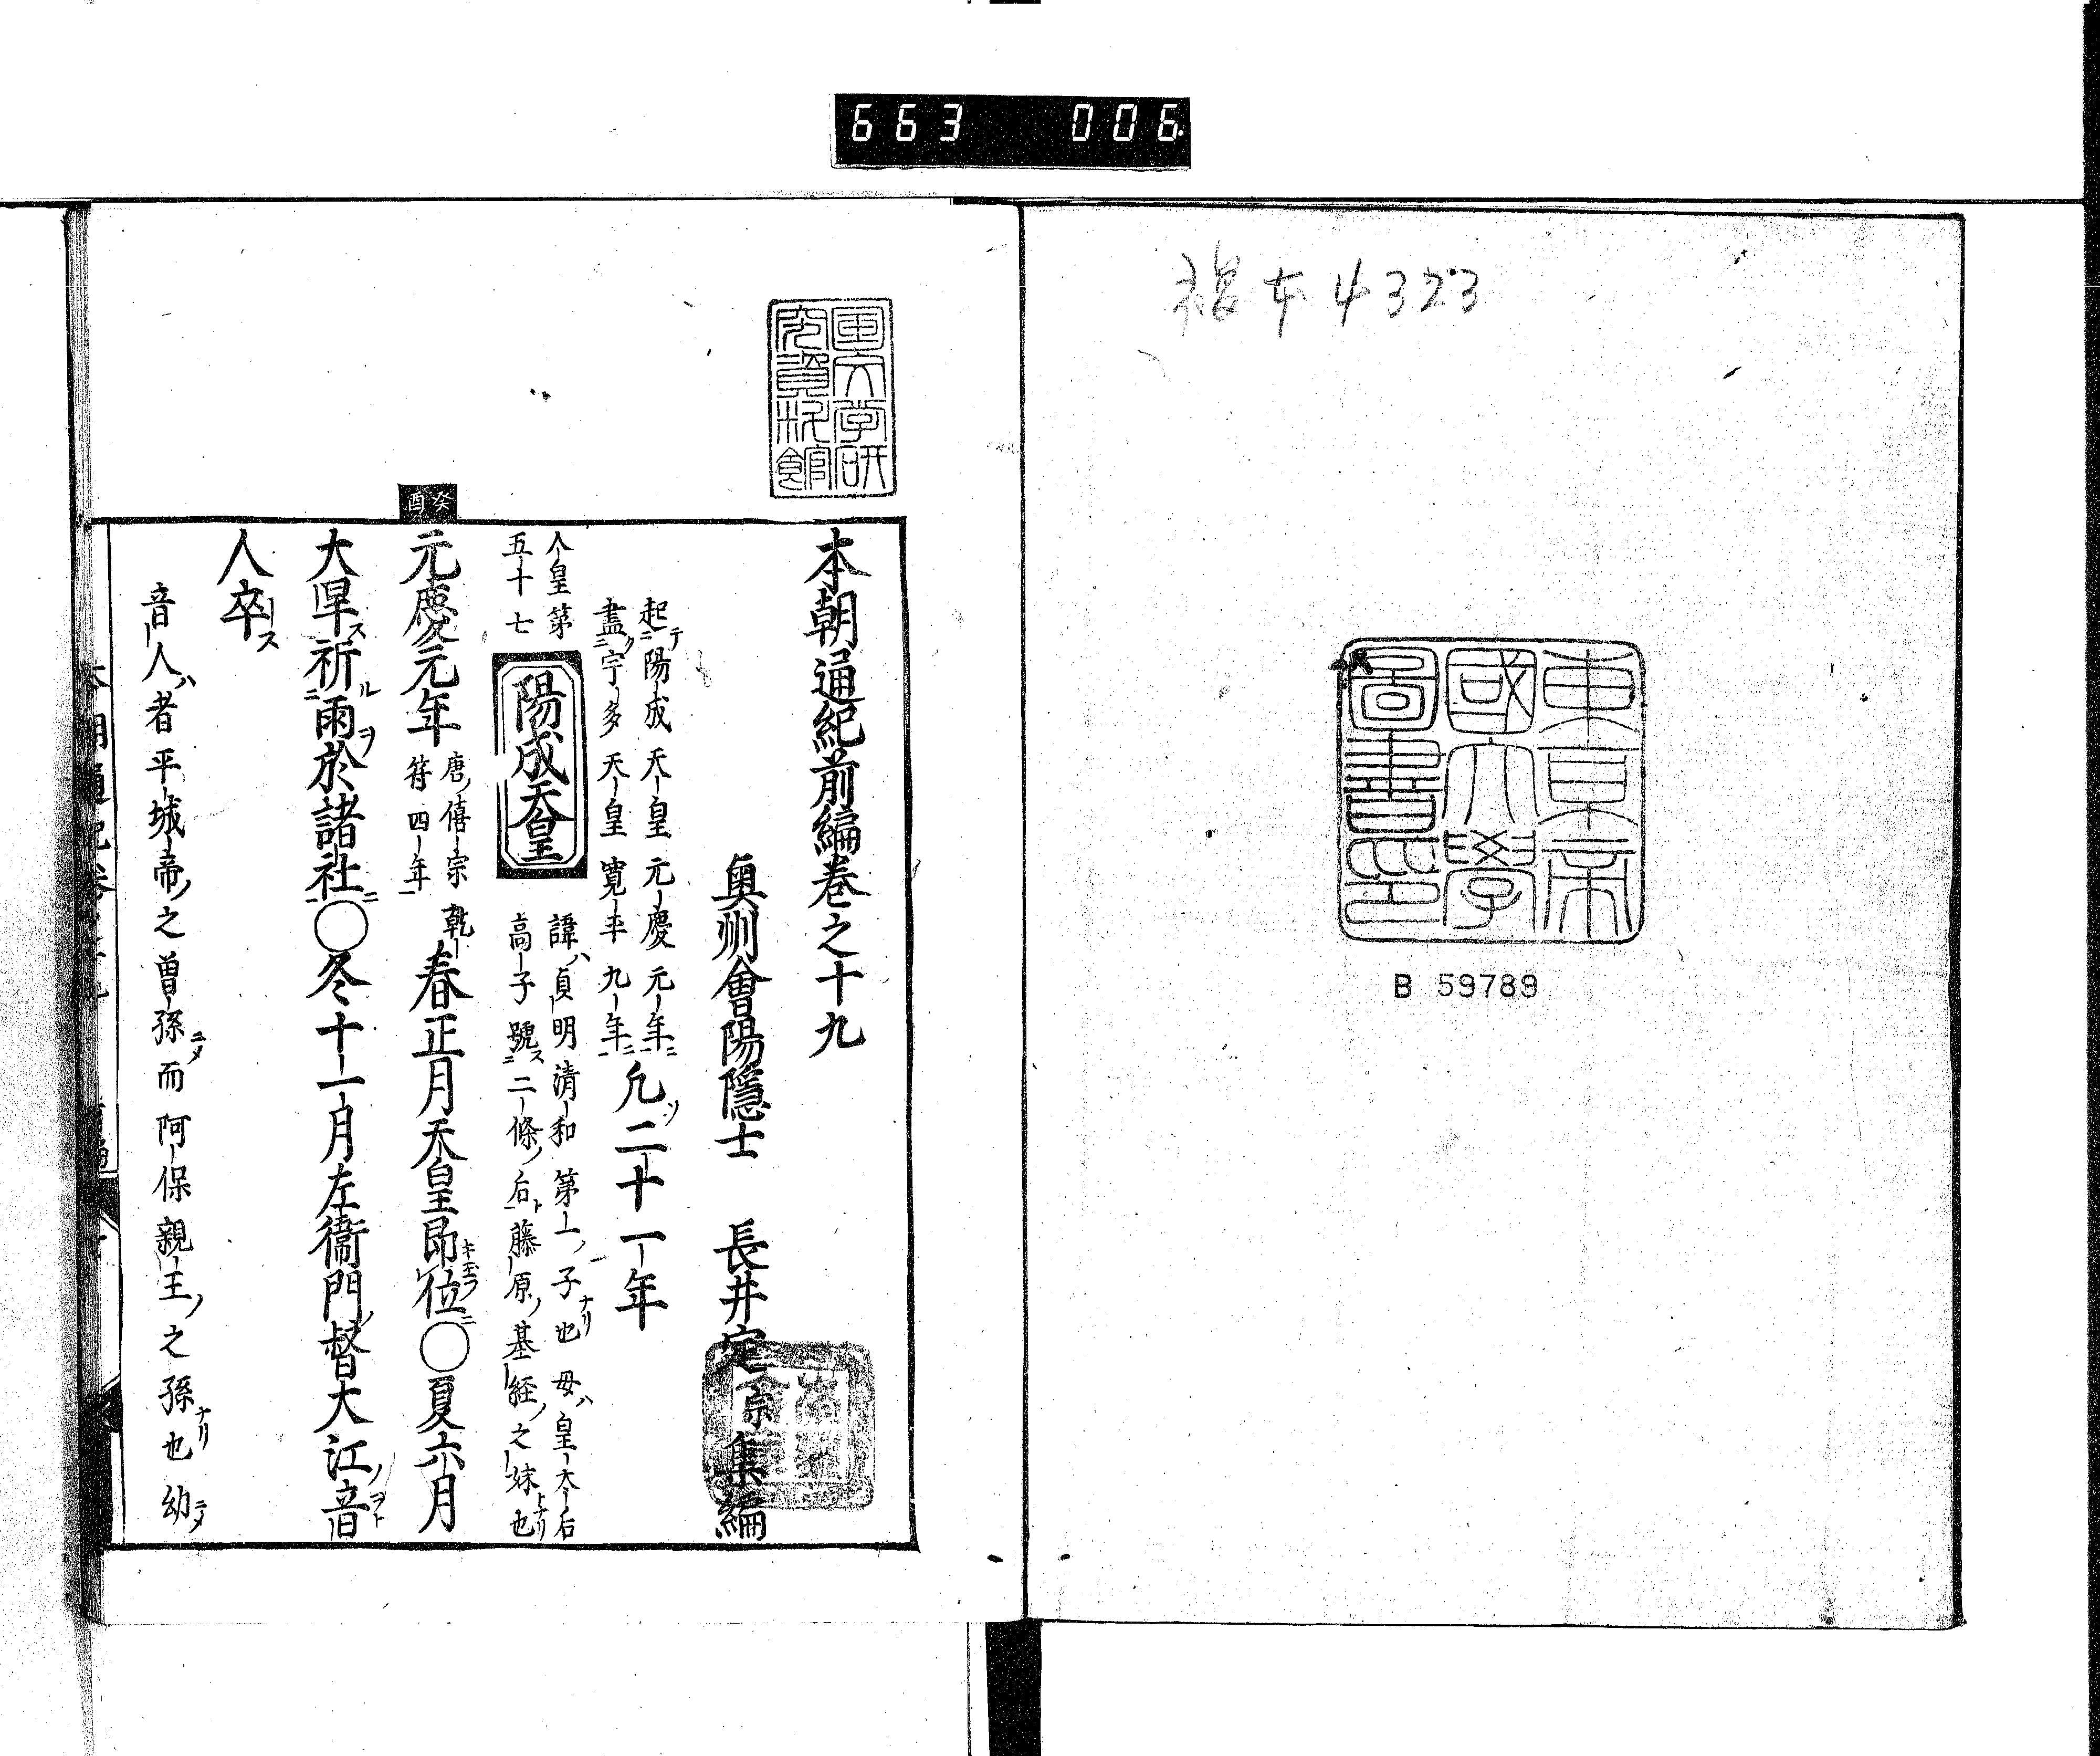 663 006
複本4323
東京帝
國大學
圖書印
B 59789
国文学研
究資料館
本朝通紀前編巻之十九
奥州會陽隱士 長井定宗集編
起テ二陽成天皇元慶元年ニ一
盡ク二宇多天皇寛平九年ニ一
凢ソ二十一年
人皇第
五十七
陽成天皇
諱ハ貞明清和第一ノ子ナリ也母ハ皇太后
高子號ス二二條ノ后ト一藤原ノ基経ノ之妹ナリ也
癸酉
元慶元年
唐ノ僖宗乾
符四年
春正月天皇即位○夏六月
大旱ス祈ル二雨ヲ於諸社ニ一○冬十一月左衞門ノ督大江ノ音
人卒ス
音人ハ者平城帝ノ之曽孫ニメ而阿保親王ノ之孫ナリ也幼ニメ